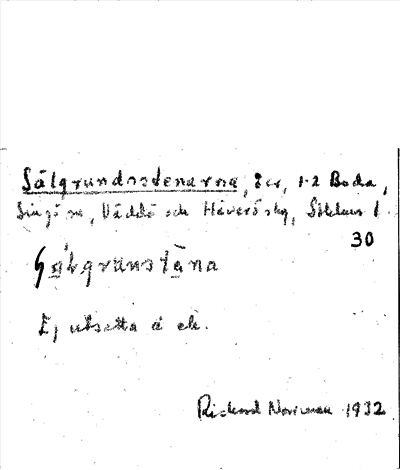 Sälgrundsstenarna, skr, 1-2 Boda,
Singö sn, Väddö och Häverö skg, Sthlms l
30
sälgrunstäna
Ej utsatta å ek.
Rickard Norrman 1932